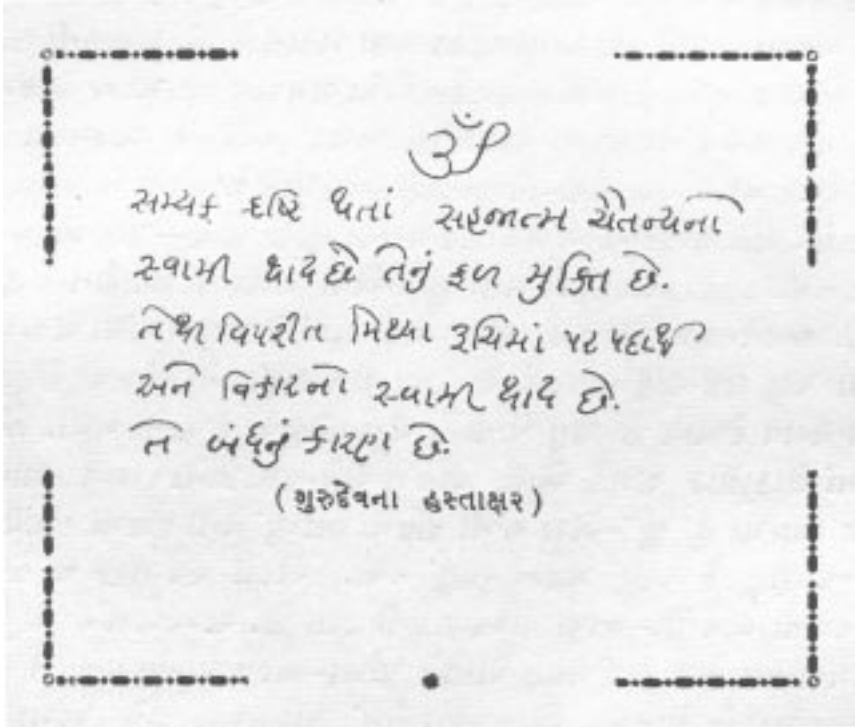 ૐ
સમ્યક દષ્ટિ થતાં સહજાત્મ ચૈતન્યનો
સ્વામી થાય છે તેનું ફળ મુક્તિ છે.
તેથી વિપરીત મિથ્યા રૂચિમાં પર પદાર્થ
અને વિકારનો સ્વામી થાય છે.
તે બંધનું કારણ છે.
(ગુરુદેવના હસ્તાક્ષર)